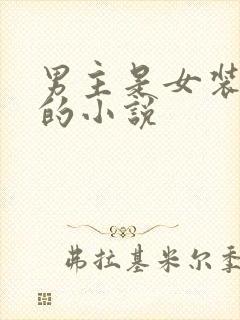 男主是女装
的小说
弗拉基米尔季